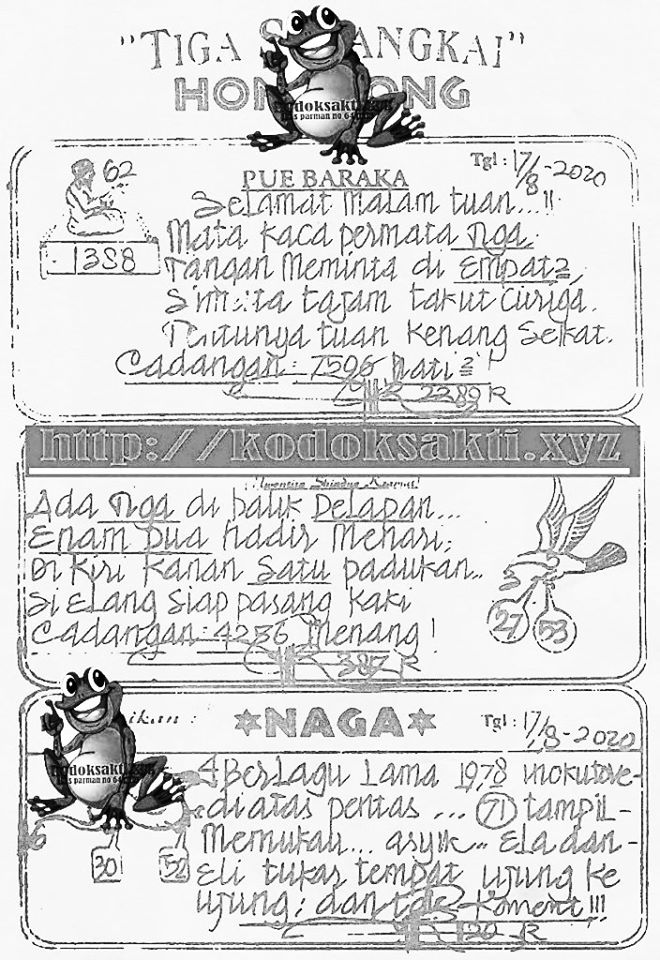 "TIGA S ANGKAI"
HON ONG
kodoksakti
s parman no 64
62
1388
PUE BARAKA
Tgl : 17/8-2020
Selamat Malam tuan...!!
Mata kaca permata Tiga.
Tangan Meminta di Empat2,
tajam takut Curiga.
Tentunya tuan Kenang Sekat.
Cadangan : 7596 Mati2 !
2289 R
http://kodoksakti.xyz
Ada Tiga di balik Delapan...
Enam Dua hadir Menari;
Di Kiri Kanan Satu padukan...
Si Elang Siap pasang kaki
Cadangan : 4256 Menang !
387 R
27
53
ikan :
*NAGA*
Tgl : 17/8-2020
kodoksakti
s parman no 64
6
30
52
4 Berlagu Lama 1978
diatas pentas ... 71 tampil-
Memukau... asyik.. Ela dan-
Eli tukar tempat ujung ke
ujung; dan Koment !!!
120 R